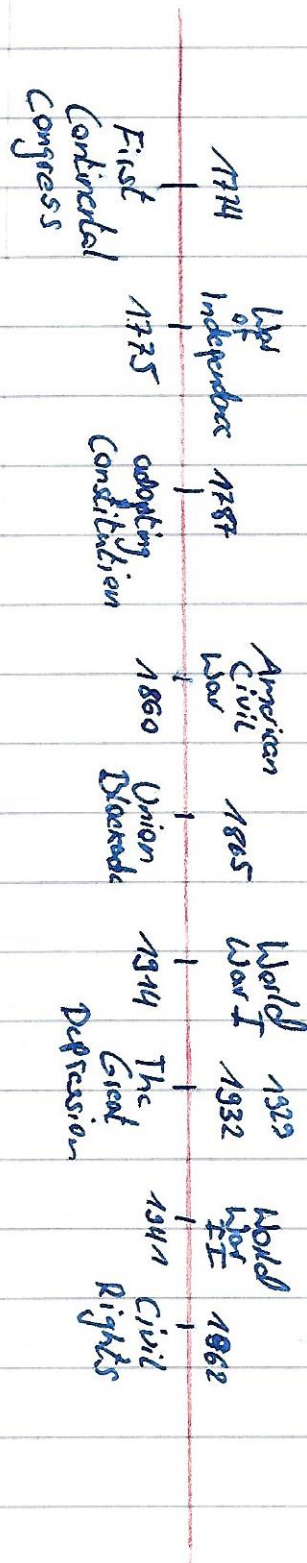 1774
First
Continental
Congress
War
of
Independence
1775
1787
adopting
Constitution
American
Civil
War
1860
1865
Union
Blockade
World
War I
1914
1929
1932
The
Great
Depression
World
War
II
1941
1962
Civil
Rights